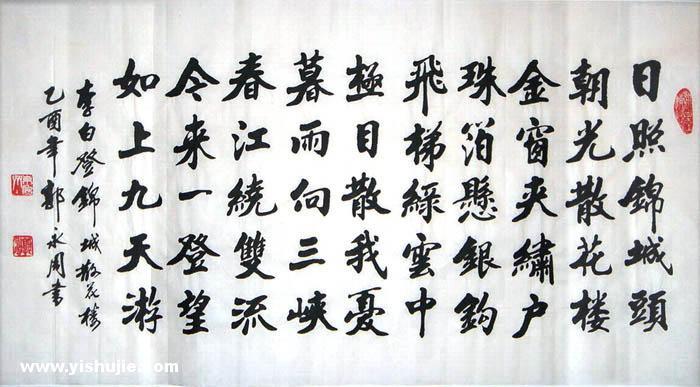 日照錦城頭
朝光散花楼
金窗夹繡户
珠箔懸銀鈎
飛梯綠雲中
極目散我憂
暮雨向三峡
春江繞雙流
今来一登望
如上九天游
李白登錦城散花楼
乙酉年郭永周書
www.yishujie.com